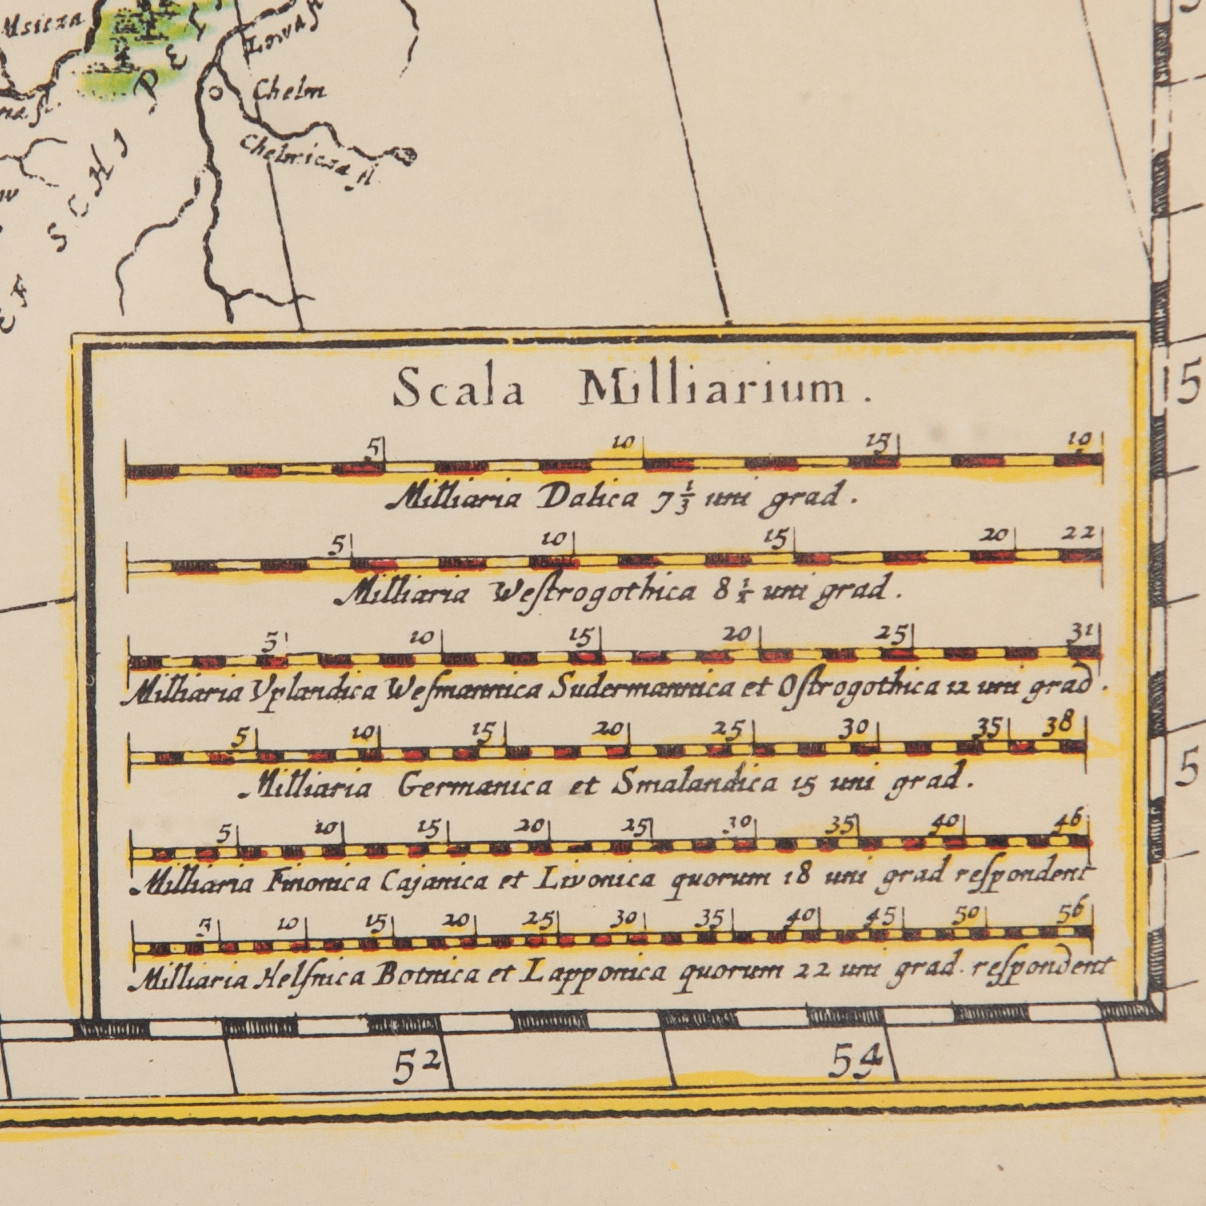 Msicza
Lowas fl
Chelm
Chelmicza fl.
SCHI PELI
Scala Milliarium.
5 10 15 10
Milliaria Dalica 7 1/3 uni grad.
5 10 15 20 22
Milliaria Weſtrogothica 8 1/2 uni grad.
5 10 15 20 25 31
Milliaria Vplandica Weſmannica Sudermannica et Oſtrogothica 12 uni grad.
5 10 15 20 25 30 35 38
Milliaria Germanica et Smalandica 15 uni grad.
5 10 15 20 25 30 35 40 46
Milliaria Finonica Cajanica et Livonica quorum 18 uni grad reſpondent
5 10 15 20 25 30 35 40 45 50 56
Milliaria Helſnica Botnica et Lapponica quorum 22 uni grad. reſpondent
52 54
5
5